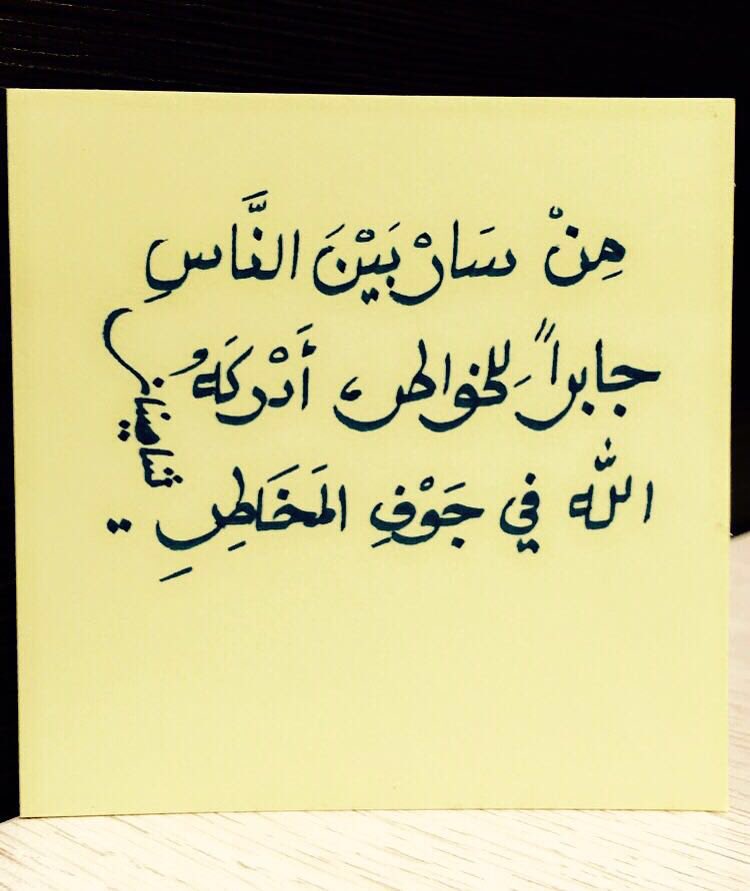 مِنْ سَارْ بَيْنَ النَّاسِ
جابراً لِلخواطر، أَدْرَكَهُ
الله في جَوْفِ المَخَاطِرِ..